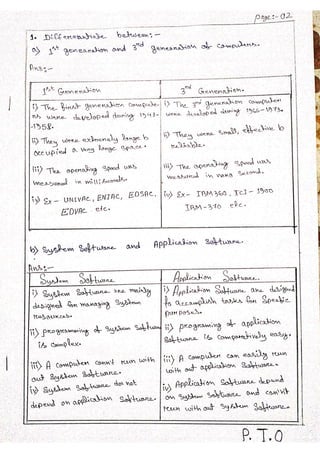 Page:- 02
1. Differentiate between:-
a) 1st generation and 3rd generation of computers.
Ans:-
1st Generation
3rd Generation.
i) The first generation computers were developed during 1943-1958.
i) The 3rd generation computers were developed during 1966-1973.
ii) They were extremely large & occupied a very large space.
ii) They were small, effective & reliable.
iii) The operating speed was measured in milliseconds.
iii) The operating speed was measured in nano second.
iv) Ex - UNIVAC, ENIAC, EDSAC, EDVAC etc.
iv) Ex - IBM360, ICI - 1900 IBM-370 etc.
b) System Software and Application Software.
Ans:-
System Software
Application Software.
i) System Software are mainly designed for managing System resources.
i) Application Software are designed to accomplish tasks for Specific purposes.
ii) programming of System Software is complex.
ii) programing of application Software is comparatively easy.
iii) A computer can't run with out System Software.
iii) A computer can easily run with out application Software.
iv) System Software do not depend on application Software.
iv) Application Software depend on System Software and can't run with out System Software.
P.T.O